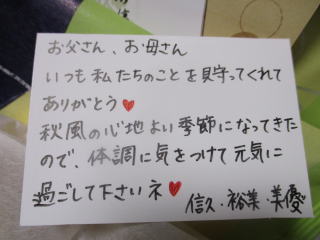 お父さん、お母さん
いつも私たちのことを見守ってくれて
ありがとう♥
秋風の心地よい季節になってきた
ので、体調に気をつけて元気に
過ごして下さいネ♥
信久・裕美・美優